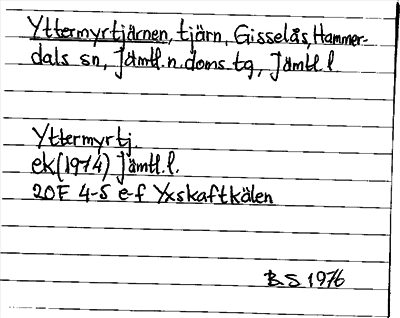 Yttermyrtjärnen, tjärn, Gisselås, Hammer-
dals sn, Jämtl. n. doms. tg, Jämtl. l
Yttermyrtj.
ek (1974) Jämtl. l.
20F 4-5 e-f Yxskaftkälen
B S 1976